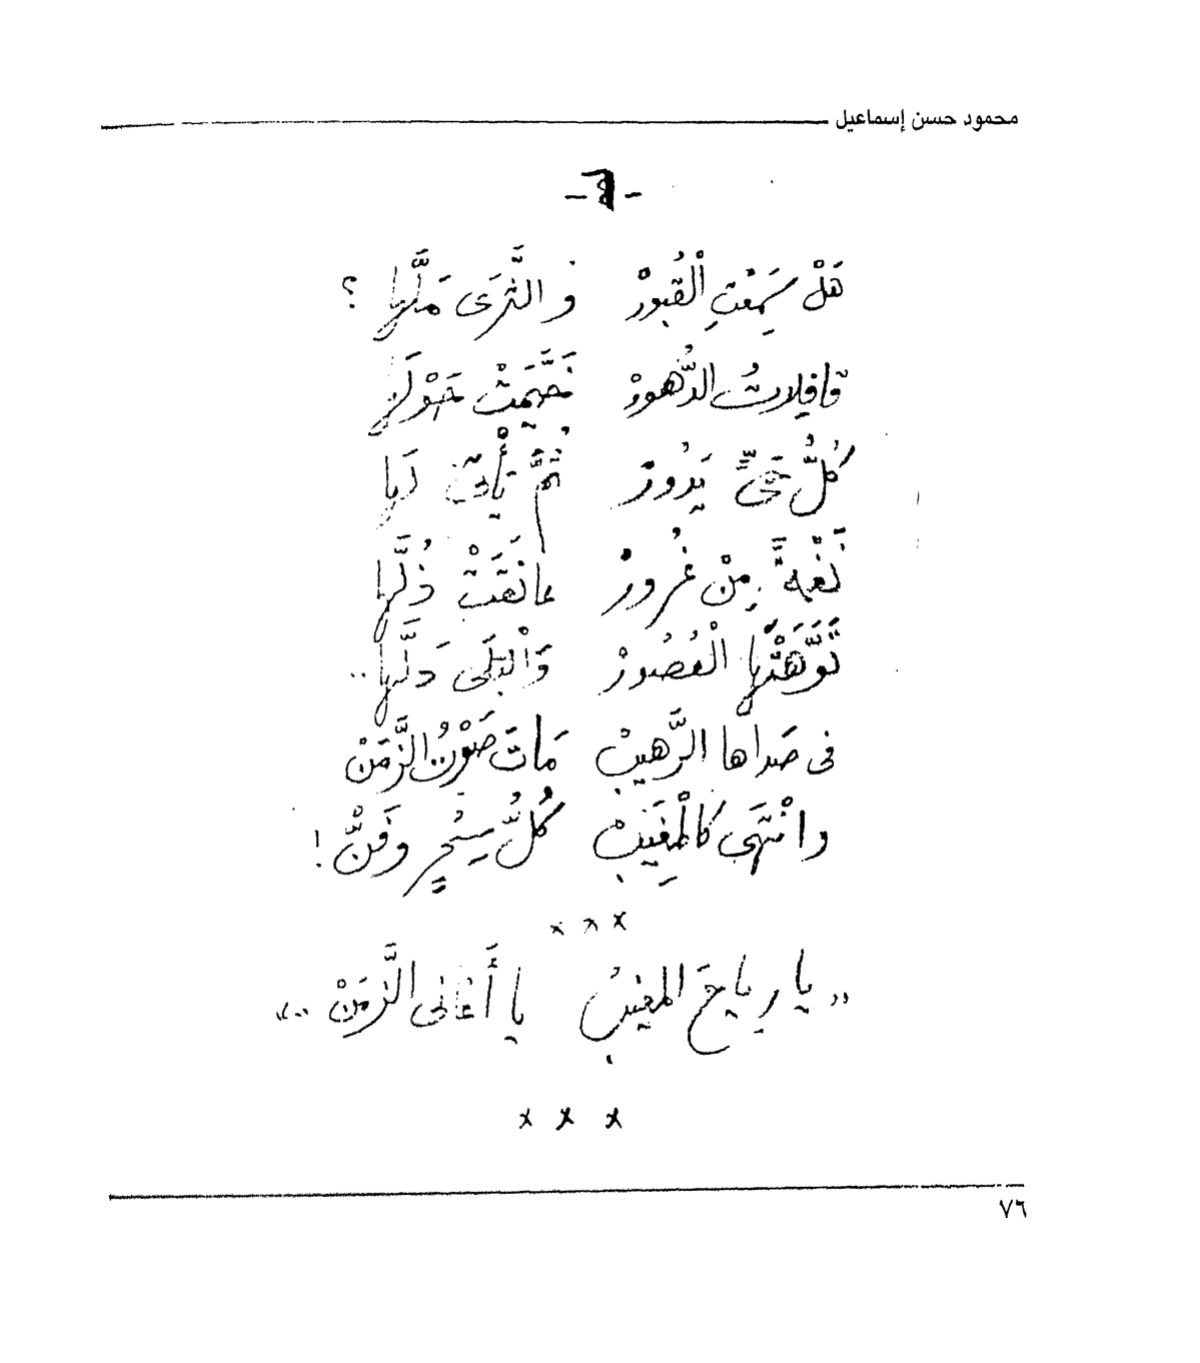 محمود حسن إسماعيل
هَلْ سَمِعْتِ الْقُبُورْ والثَّرَى مَلَّها ؟
قافِلاتُ الدُّهورْ خَيَّمَتْ حَوْلَها
كُلُّ حَىٍّ يَدُورْ ثُمَّ يَأْتِى لَها
نَغْمةً مِنْ غُرورْ عانَقَتْ ذُلَّها
تَوَّهَتْها الْعُصُورْ وَالْبِلَى دَلَّها..
فى صَداها الرَّهيبْ ماتَ صَوْتُ الزَّمَنْ
وانْتَهَى كالْمَغِيبْ كُلُّ سِحْرٍ وفَنّْ !
× × ×
" يا رِياحَ المغيبْ يا أَغانى الزَّمَنْ .. "
× × ×
٧٦